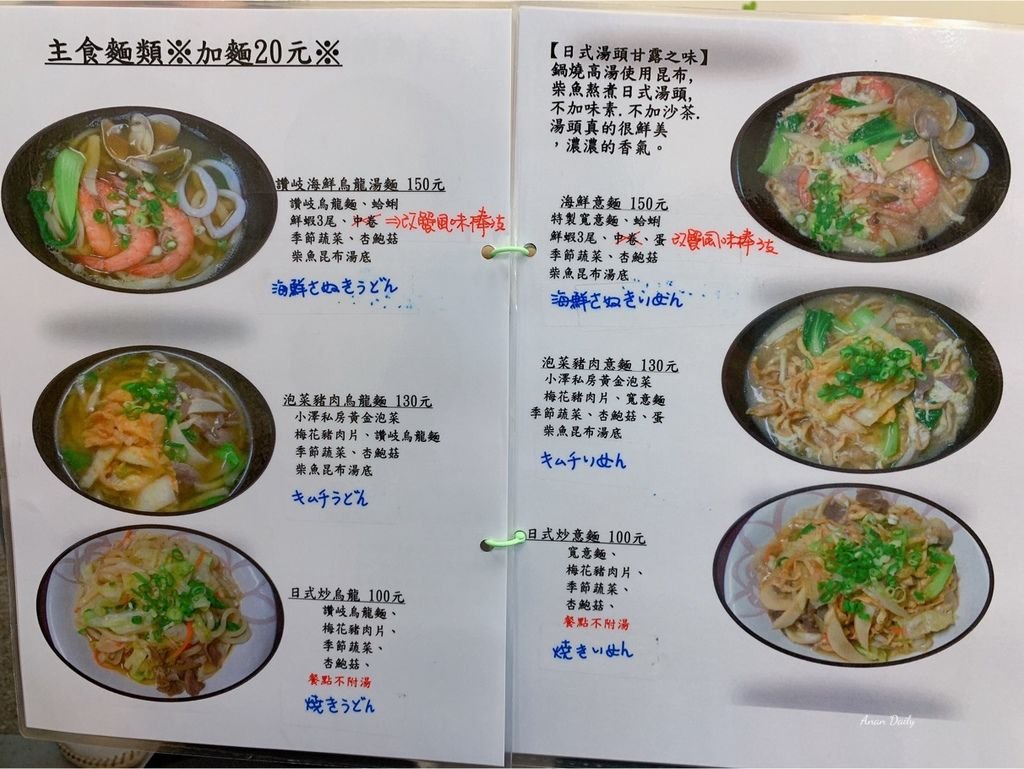 主食麵類※加麵20元※
讚岐海鮮烏龍湯麵 150元
讚岐烏龍麵、蛤蜊
鮮蝦3尾、中卷⇒改蟹風味棒2支
季節蔬菜、杏鮑菇
柴魚昆布湯底
海鮮さぬきうどん
泡菜豬肉烏龍麵 130元
小澤私房黃金泡菜
梅花豬肉片、讚岐烏龍麵
季節蔬菜、杏鮑菇
柴魚昆布湯底
キムチうどん
日式炒烏龍 100元
讚岐烏龍麵、
梅花豬肉片、
季節蔬菜、
杏鮑菇、
餐點不附湯
焼きうどん
【日式湯頭甘露之味】
鍋燒高湯使用昆布,
柴魚熬煮日式湯頭,
不加味素.不加沙茶.
湯頭真的很鮮美
，濃濃的香氣。
海鮮意麵 150元
特製寬意麵、蛤蜊
鮮蝦3尾、中卷、蛋 改蟹風味棒2支
季節蔬菜、杏鮑菇
柴魚昆布湯底
海鮮さぬきいめん
泡菜豬肉意麵 130元
小澤私房黃金泡菜
梅花豬肉片、寬意麵
季節蔬菜、杏鮑菇、蛋
柴魚昆布湯底
キムチいめん
日式炒意麵 100元
寬意麵、
梅花豬肉片、
季節蔬菜、
杏鮑菇、
餐點不附湯
焼きいめん
Anan Daily